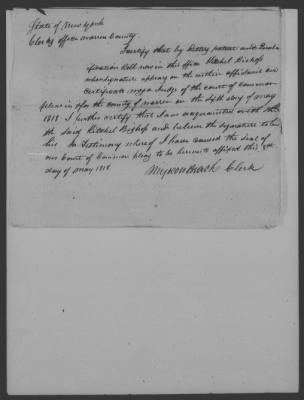 State of New York
Clerks office Warren County
I certify that by Dedimus potestatem and Qualification Roll now in this office Kitchel Bishop
whose signature appears on the within affidavit and
certificate was a Judge of the court of Common
pleas in & for the county of Warren on the 4th day of May
1818 I further certify that I am acquainted with the
said Kitchel Bishop and believe the signature to be
his In Testimony whereof I have caused the seal of
our Court of Common pleas to be hereunto affixed this
day of May 1818
Clerk